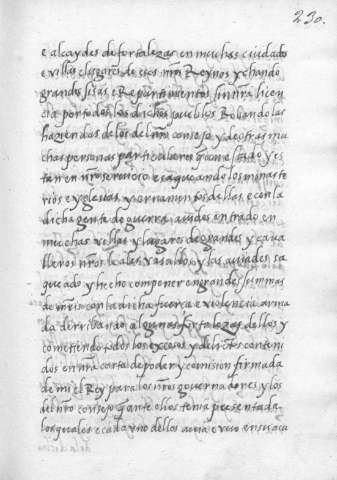 230.
e alcaydes de fortalezas en muchas ciudades
e villas e lugares de esos nros Reynos y echando
grandes sisas e Repartimientos sin nra licen
cia por todos los dichos pueblos Robando las
haziendas de los del nro consejo y de otras mu
chas personas particulares que an seruido y es
tan en nro seruicio e saqueando los monaste
rios e yglesias y ornamentos dellas e con la
dicha gente de guerra auiendo entrado en
muchas villas y lugares de grandes y caua
lleros nros leales vasallos y los auiendo sa
queado y hecho componer en grandes summas
de mrs con la dicha fuerça e violencia arma
da derribando algunas fortalezas dellos y
cometiendo todos los excesos y delictos conteni
dos en nra carta de poder y comision firmada
de mi el Rey para los nros gouernadores y los
del nro consejo que ante ellos tenia presentada
los quales e cada vno dellos auia e vuo en su aca